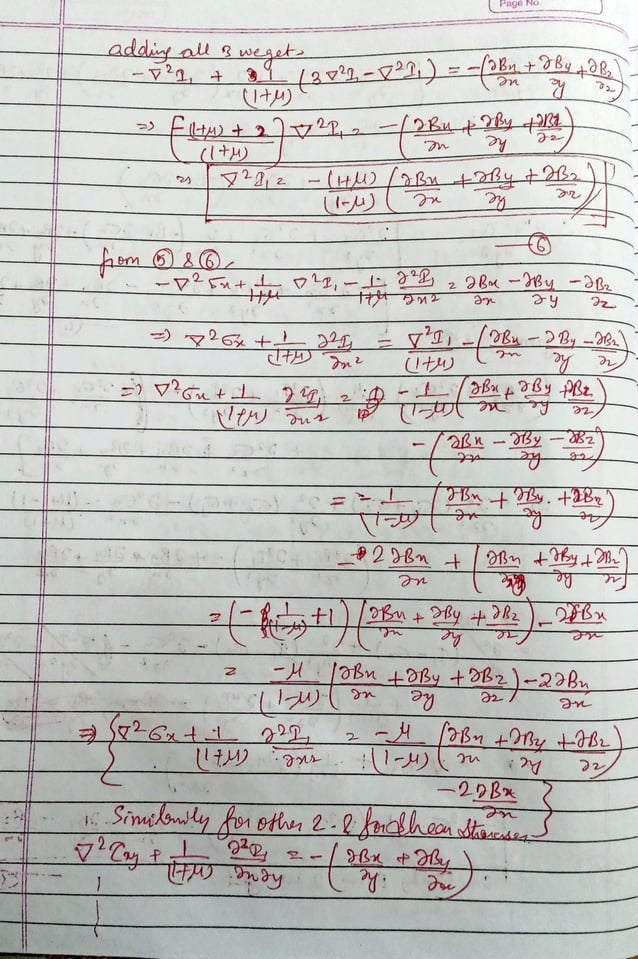 Page No.
adding all 3 we get,
-∇²I₁ + 1/(1+μ) (3∇²I₁ - ∇²I₁) = -(∂Bx/∂x + ∂By/∂y + ∂Bz/∂z)
⇒ [-(1+μ) + 2 / (1+μ)] ∇²I₁ = -(∂Bx/∂x + ∂By/∂y + ∂Bz/∂z)
⇒ ∇²I₁ = -(1+μ)/(1-μ) (∂Bx/∂x + ∂By/∂y + ∂Bz/∂z)
—⑥
from ⑤ & ⑥,
-∇²σx + 1/(1+μ) ∇²I₁ - 1/(1+μ) ∂²I₁/∂x² = ∂Bx/∂x - ∂By/∂y - ∂Bz/∂z
⇒ ∇²σx + 1/(1+μ) ∂²I₁/∂x² = ∇²I₁/(1+μ) - (∂Bx/∂x - ∂By/∂y - ∂Bz/∂z)
⇒ ∇²σx + 1/(1+μ) ∂²I₁/∂x² = - 1/(1-μ) (∂Bx/∂x + ∂By/∂y + ∂Bz/∂z)
- (∂Bx/∂x - ∂By/∂y - ∂Bz/∂z)
= = - 1/(1-μ) (∂Bx/∂x + ∂By/∂y + ∂Bz/∂z)
- 2 ∂Bx/∂x + (∂Bx/∂x + ∂By/∂y + ∂Bz/∂z)
= (- 1/(1-μ) + 1) (∂Bx/∂x + ∂By/∂y + ∂Bz/∂z) - 2∂Bx/∂x
= -μ/(1-μ) (∂Bx/∂x + ∂By/∂y + ∂Bz/∂z) - 2∂Bx/∂x
⇒ {∇²σx + 1/(1+μ) ∂²I₁/∂x² = -μ/(1-μ) (∂Bx/∂x + ∂By/∂y + ∂Bz/∂z)
- 2∂Bx/∂x }
Similarily for other 2. & for shear stresses
∇²τxy + 1/(1+μ) ∂²I₁/∂x∂y = -(∂Bx/∂y + ∂By/∂x)